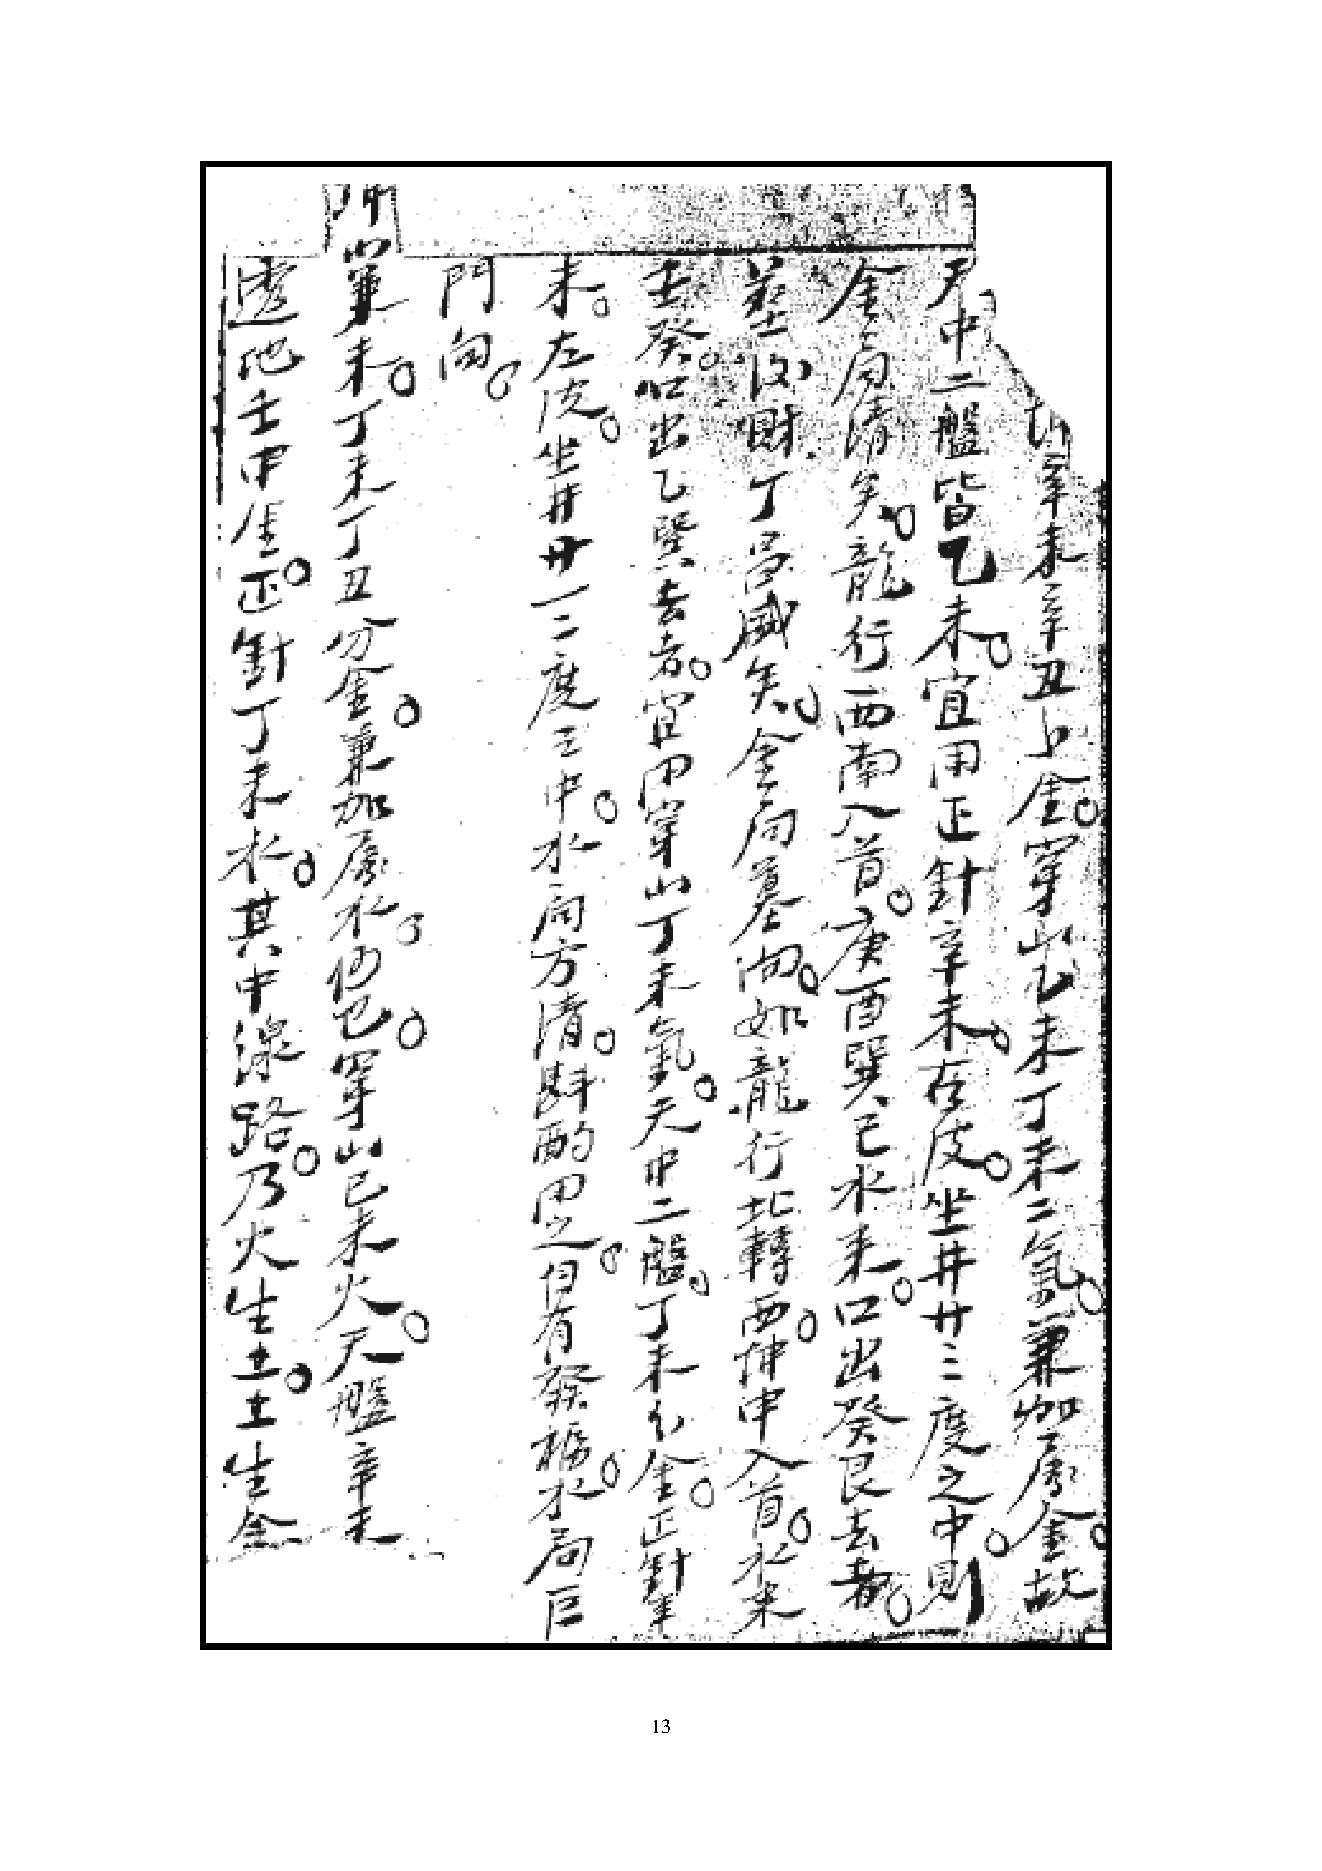 辛未辛丑分金。穿山乙未丁未二氣。兼加房金。故
天中二盤皆乙未。宜用正針辛未。在度。坐井廿二度之中。則
金局清矣。龍行西南入首。庚酉巽巳水來。口出癸艮去者。
墓收財丁昌盛矣。金局墓向。如龍行北轉西伸申入首。水來
壬癸。口出乙巽去者。宜用穿山丁未氣。天中二盤。丁未分金。正針辛
未。在度。坐井廿一二度三中。水局方清。斟酌用之。自有發福。水局巨
門向。
丁未丁丑分金。兼加房水。仍巳。穿山己未火。天盤辛未
透地壬申金。正針丁未水。其中線路。乃火生土。土生金